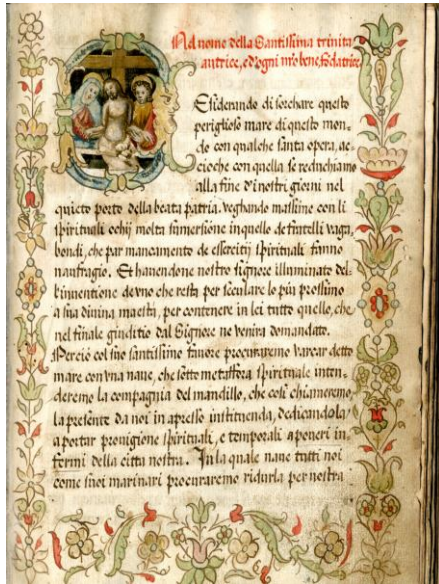 Nel nome della Santissima trinita
autrice, e d'ogni nr̃o bene, fōdatrice
Esiderando di solchare questo
periglioso mare di questo mon-
do con qualche santa opera, ac-
cioche con quella se reduchiamo
alla fine d'i nostri giorni nel
quieto porto della beata patria. veghando massime con li
spirituali ochij molta summersione in quello de fratelli vaga-
bondi, che par mancamento de essercitij spirituali fanno
naufragio. Et havendone nostro signore illuminato del-
l'inventione de vno che resta per seculare lo piu prossimo
a sua divina maesta, per contenere in lei tutto quello, che
nel finale giuditio dal Signore ne venira domandato.
Percio col suo santissimo favore procuraremo varcar detto
mare con vna nave, che sotto metaffora spirituale inten-
deremo la compagnia del mandillo, che cosi chiameremo
la presente da noi in apresso instituenda, dedicandola
a portar provigione spirituali, e temporali a poveri in-
fermi della citta nostra. In la quale nave tutti noi
come suoi marinari procuraremo ridurla per nostra